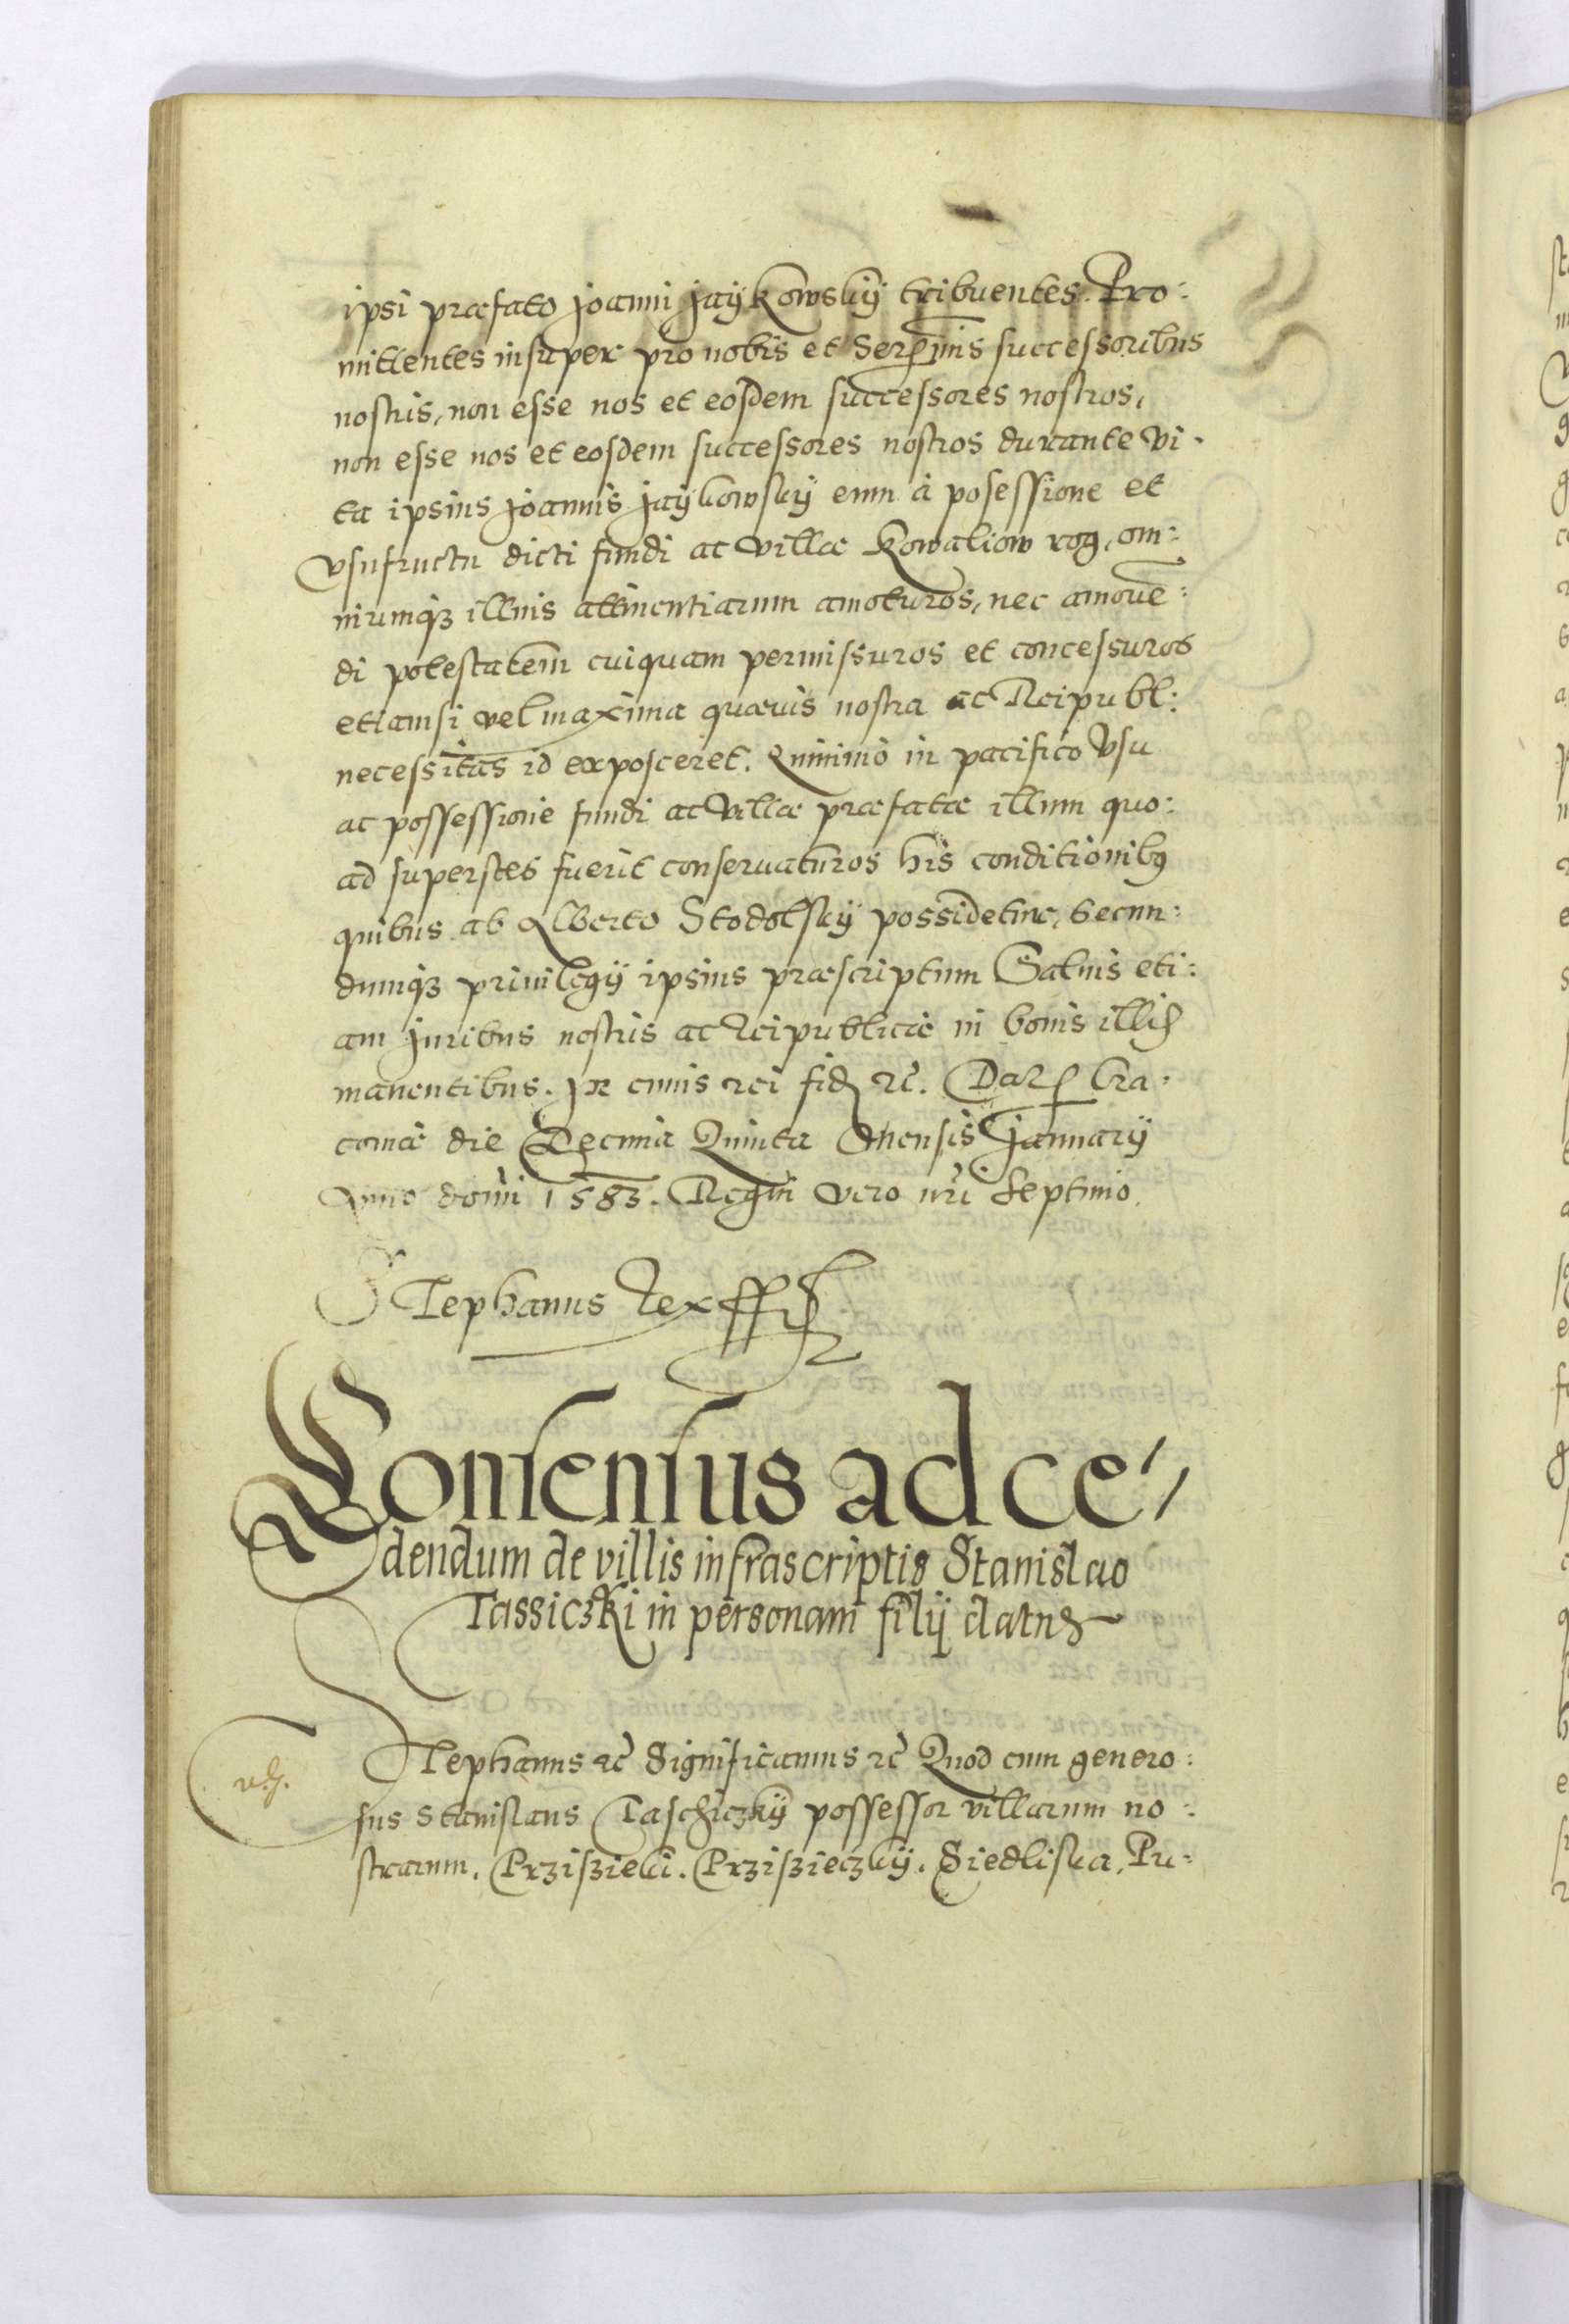 ipsi præfato Joanni Jaÿkowskÿ tribuentes. Pro:
mittentes insuper pro nobis et Serenimis successoribus
nostris, non esse nos et eosdem successores nostros,
non esse nos et eosdem successores nostros durante vi:
ta ipsius Joannis Jaÿkowskÿ eum à posessione et
vsufructu dicti fundi ac villæ Kowaliow rog, om:
niumqz illius attinentiarum amoturos, nec amovē:
di potestatem cuiquam permissuros et concessuros
etiamsi vel maxima quævis nostra ac Reipubl:
necessitas id exposceret. Quinimò in pacifico vsu
ac possessione fundi ac villæ præfatæ illum quo:
ad superstes fuerit conseruaturos his conditionibq
quibus ab Alberto Stodolskÿ possidetur, secun:
dumqz priuilegÿ ipsius præscriptum Saluis eti:
am juribus nostris ac Reipublicæ in bonis illis
manentibus. In cuius rei fid etc. Dat Cra:
couiæ die Decima Quinta Mensis Januarÿ
Anno domī 1583. Regni vero nrī Septimo.
Stephanus Rex ssst
Consensus ad ce,,
dendum de villis infrascriptis Stanislao
Tassiczki in personam filij datus
Stephanus etc Significamus etc Quod cum genero:
sus Stanislaus Taschiczkÿ possessor villarum no:
strarum. Przisieki. Przisieczkÿ. Siedliska. Pu: